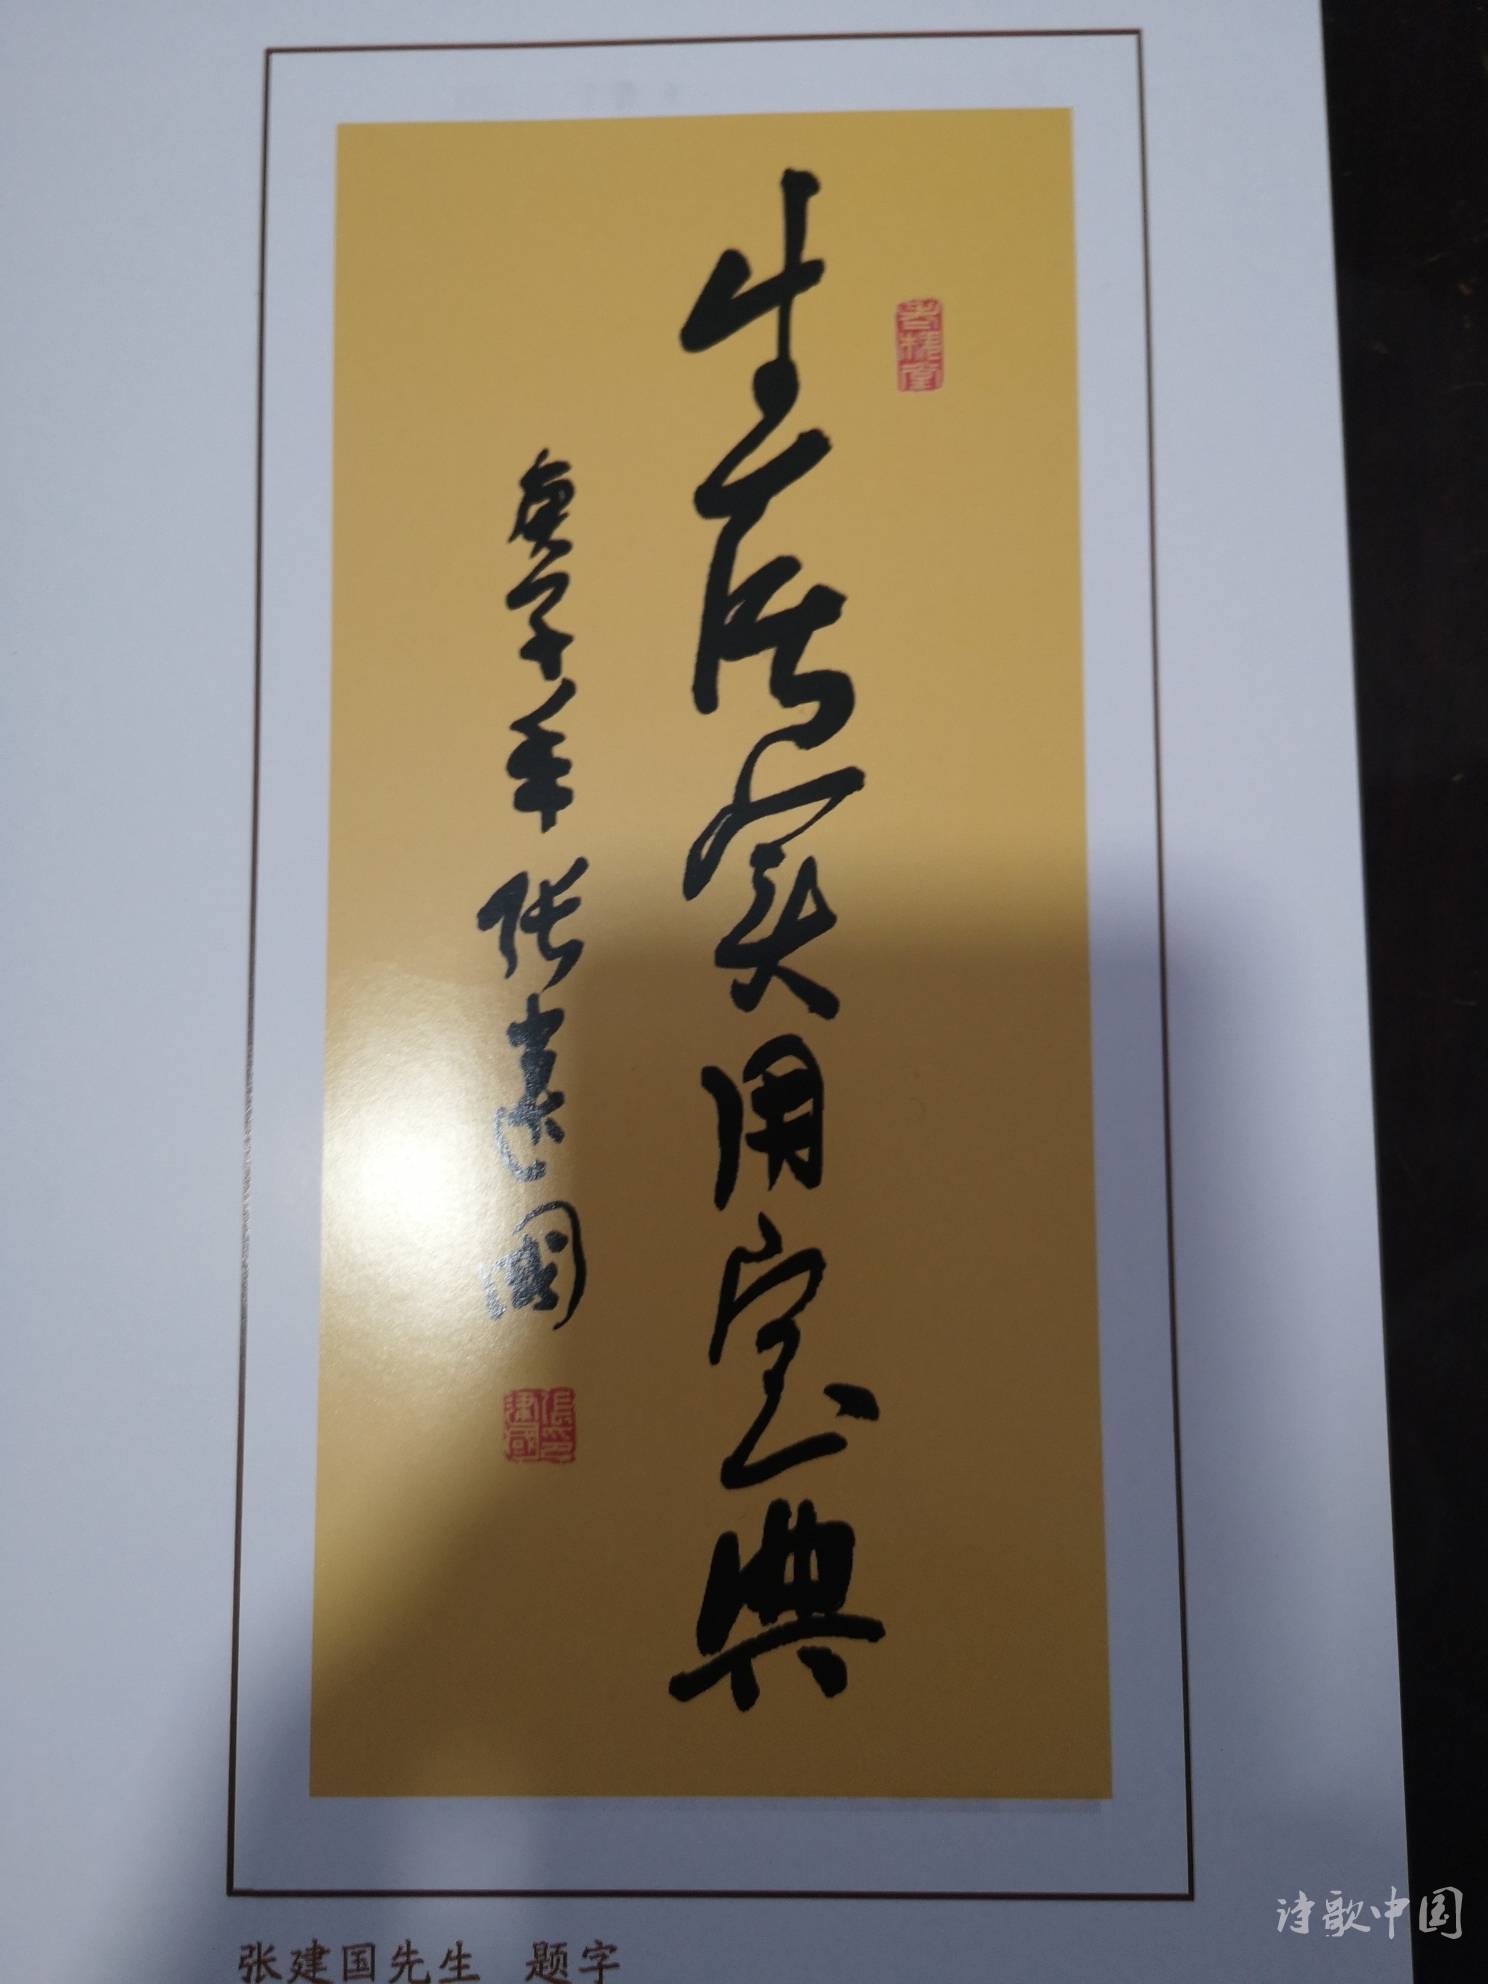 生实用宝典
庚子年 张建國
張建國印
张建国先生 题字
诗歌中国